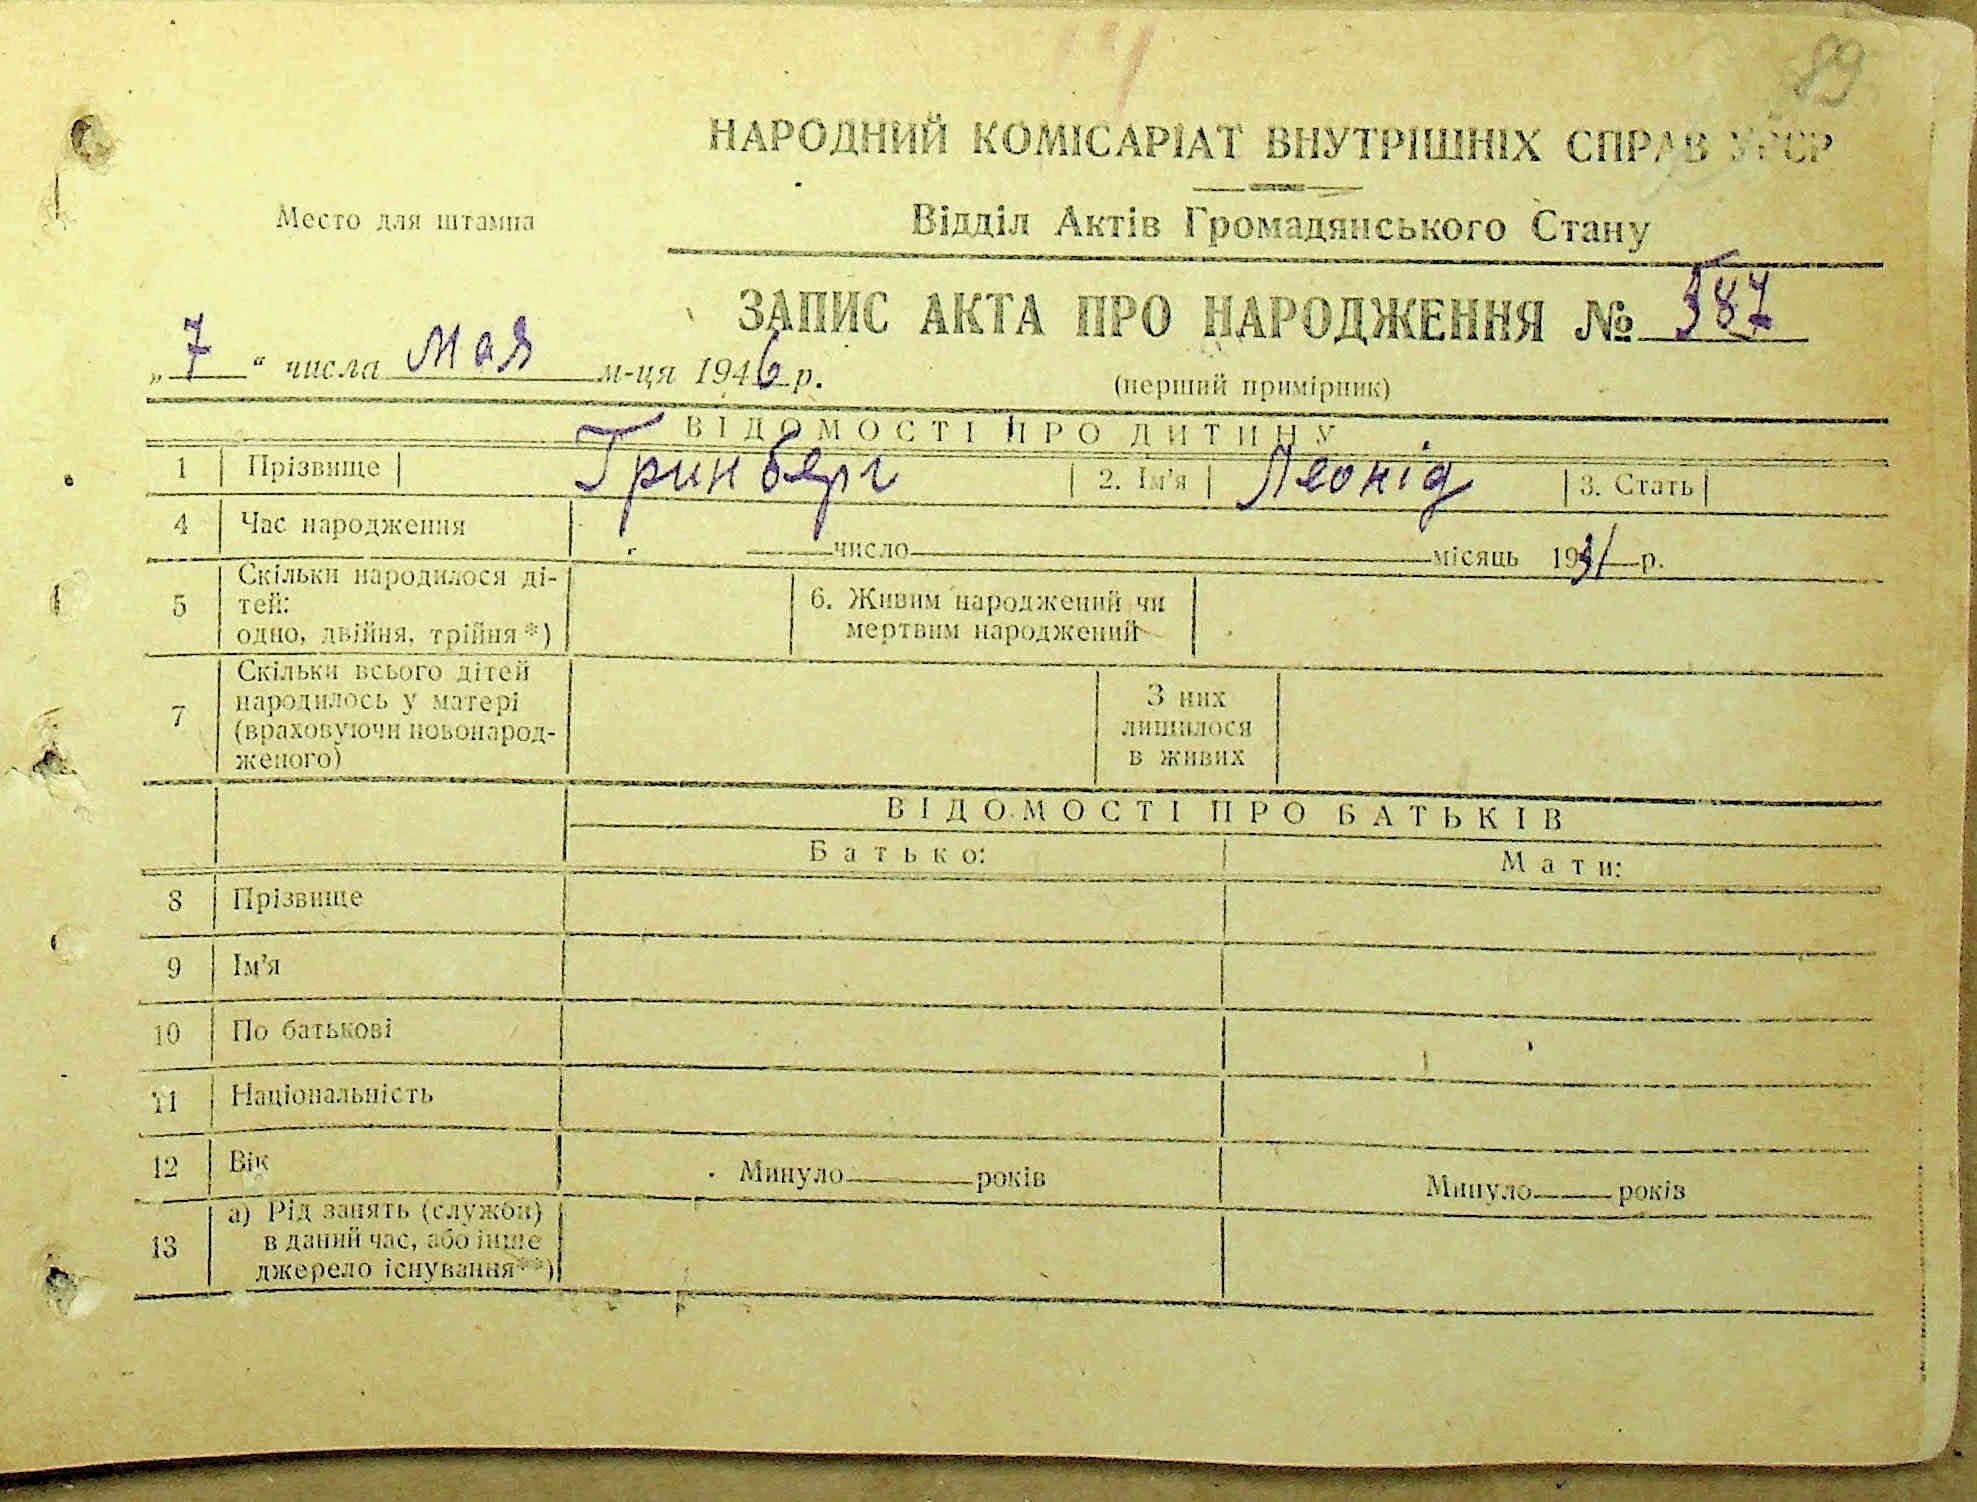 89
НАРОДНИЙ КОМІСАРІАТ ВНУТРІШНІХ СПРАВ УРСР
Место для штампа
Відділ Актів Громадянського Стану
ЗАПИС АКТА ПРО НАРОДЖЕННЯ № 587
„7“ числа мая м-ця 1946 р.
(перший примірник)
ВІДОМОСТІ ПРО ДИТИНУ
1 Прізвище Гринберг 2. Ім'я Леонід 3. Стать
4 Час народження число місяць 1931 р.
5 Скільки народилося ді-
тей:
одно, двійня, трійня*)
6. Живим народжений чи
мертвим народжений
7 Скільки всього дітей
народилось у матері
(враховуючи новонарод-
женого)
З них
лишилося
в живих
ВІДОМОСТІ ПРО БАТЬКІВ
Батько: Мати:
8 Прізвище
9 Ім'я
10 По батькові
11 Національність
12 Вік Минуло років Минуло років
13 а) Рід занять (служби)
в даний час, або інше
джерело існування**)